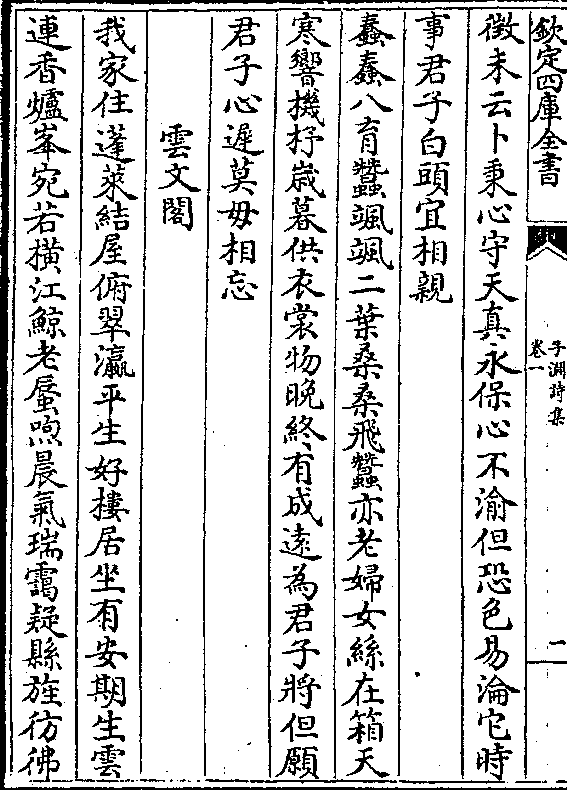 欽定四庫全書
子淵詩集
卷一
二
徴未云卜秉心守天真永保心不渝但恐色易淪它時
事君子白頭宜相親
蠢蠢八育蠶颯颯二葉桑桑飛蠶亦老婦女絲在箱天
寒響機杼嵗暮供衣裳物晚終有成遠為君子將但願
君子心遲莫毋相忘
雲文閣
我家住蓬萊結屋俯翠瀛平生好樓居坐有安期生雲
連香爐峯宛若橫江鯨老蜃喣晨氣瑞靄疑縣旌彷彿